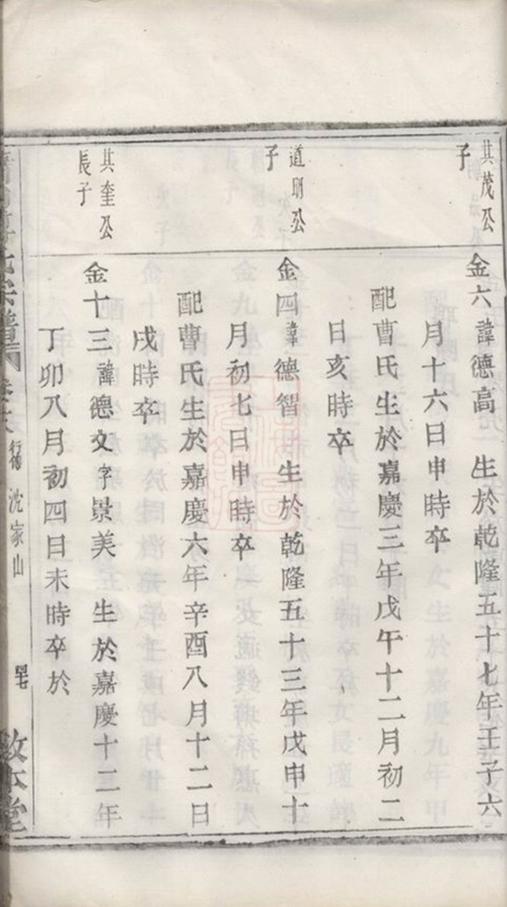 其茂公
子
金六諱德高 生於乾隆五十七年壬子六
月十六日申時卒
配曹氏生於嘉慶三年戊午十二月初二
日亥時卒
道明公
子
金四諱德智 生於乾隆五十三年戊申十
月初七日申時卒
配曹氏生於嘉慶六年辛酉八月十二日
戌時卒
其奎公
長子
金十三諱德文字景美 生於嘉慶十三年
丁卯八月初四日未時卒於
氏宗譜
沈家山
敦本堂